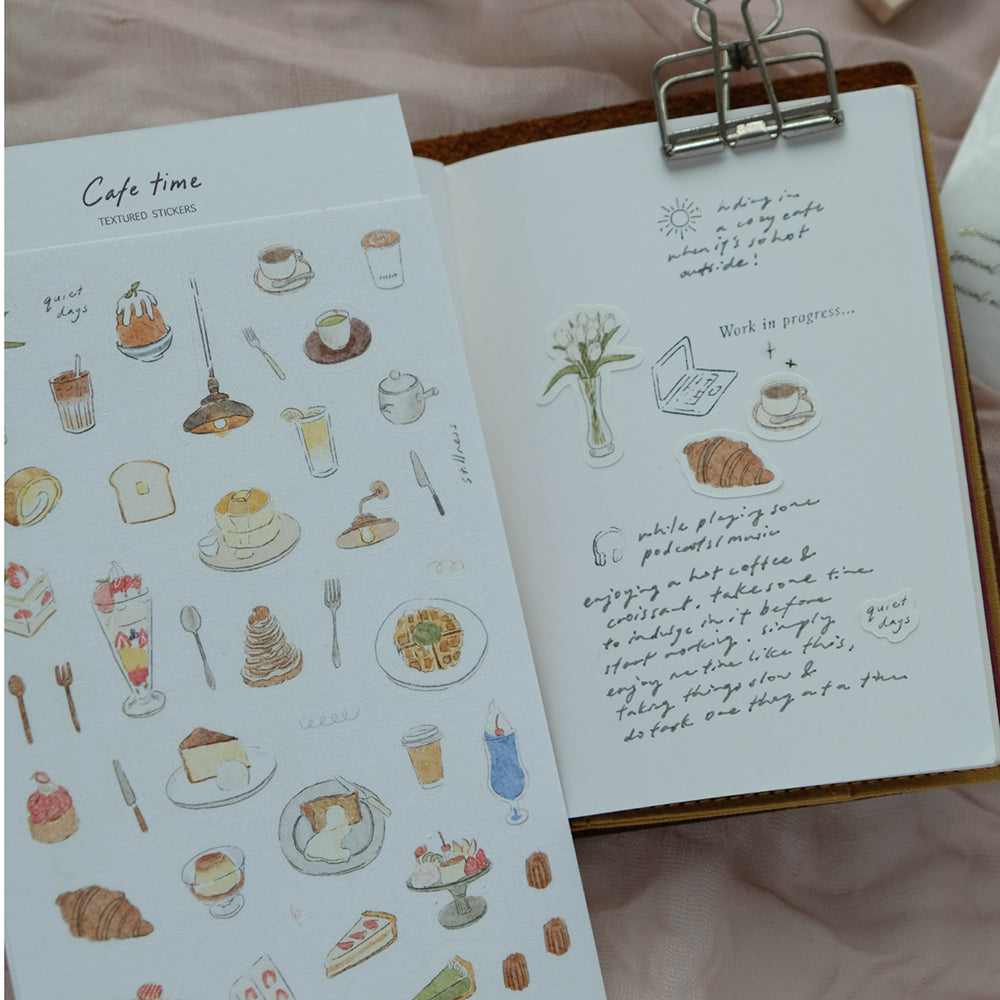 Cafe time
TEXTURED STICKERS
quiet
days
COFFEE
stillness
hiding in
a cozy cafe
when it's so hot
outside!
Work in progress...
while playing some
podcasts/music
enjoying a hot coffee &
croissant. take some time
to indulge in it before
start working. simply
enjoy me time like this,
taking things slow &
do task one thing at a time
quiet
days